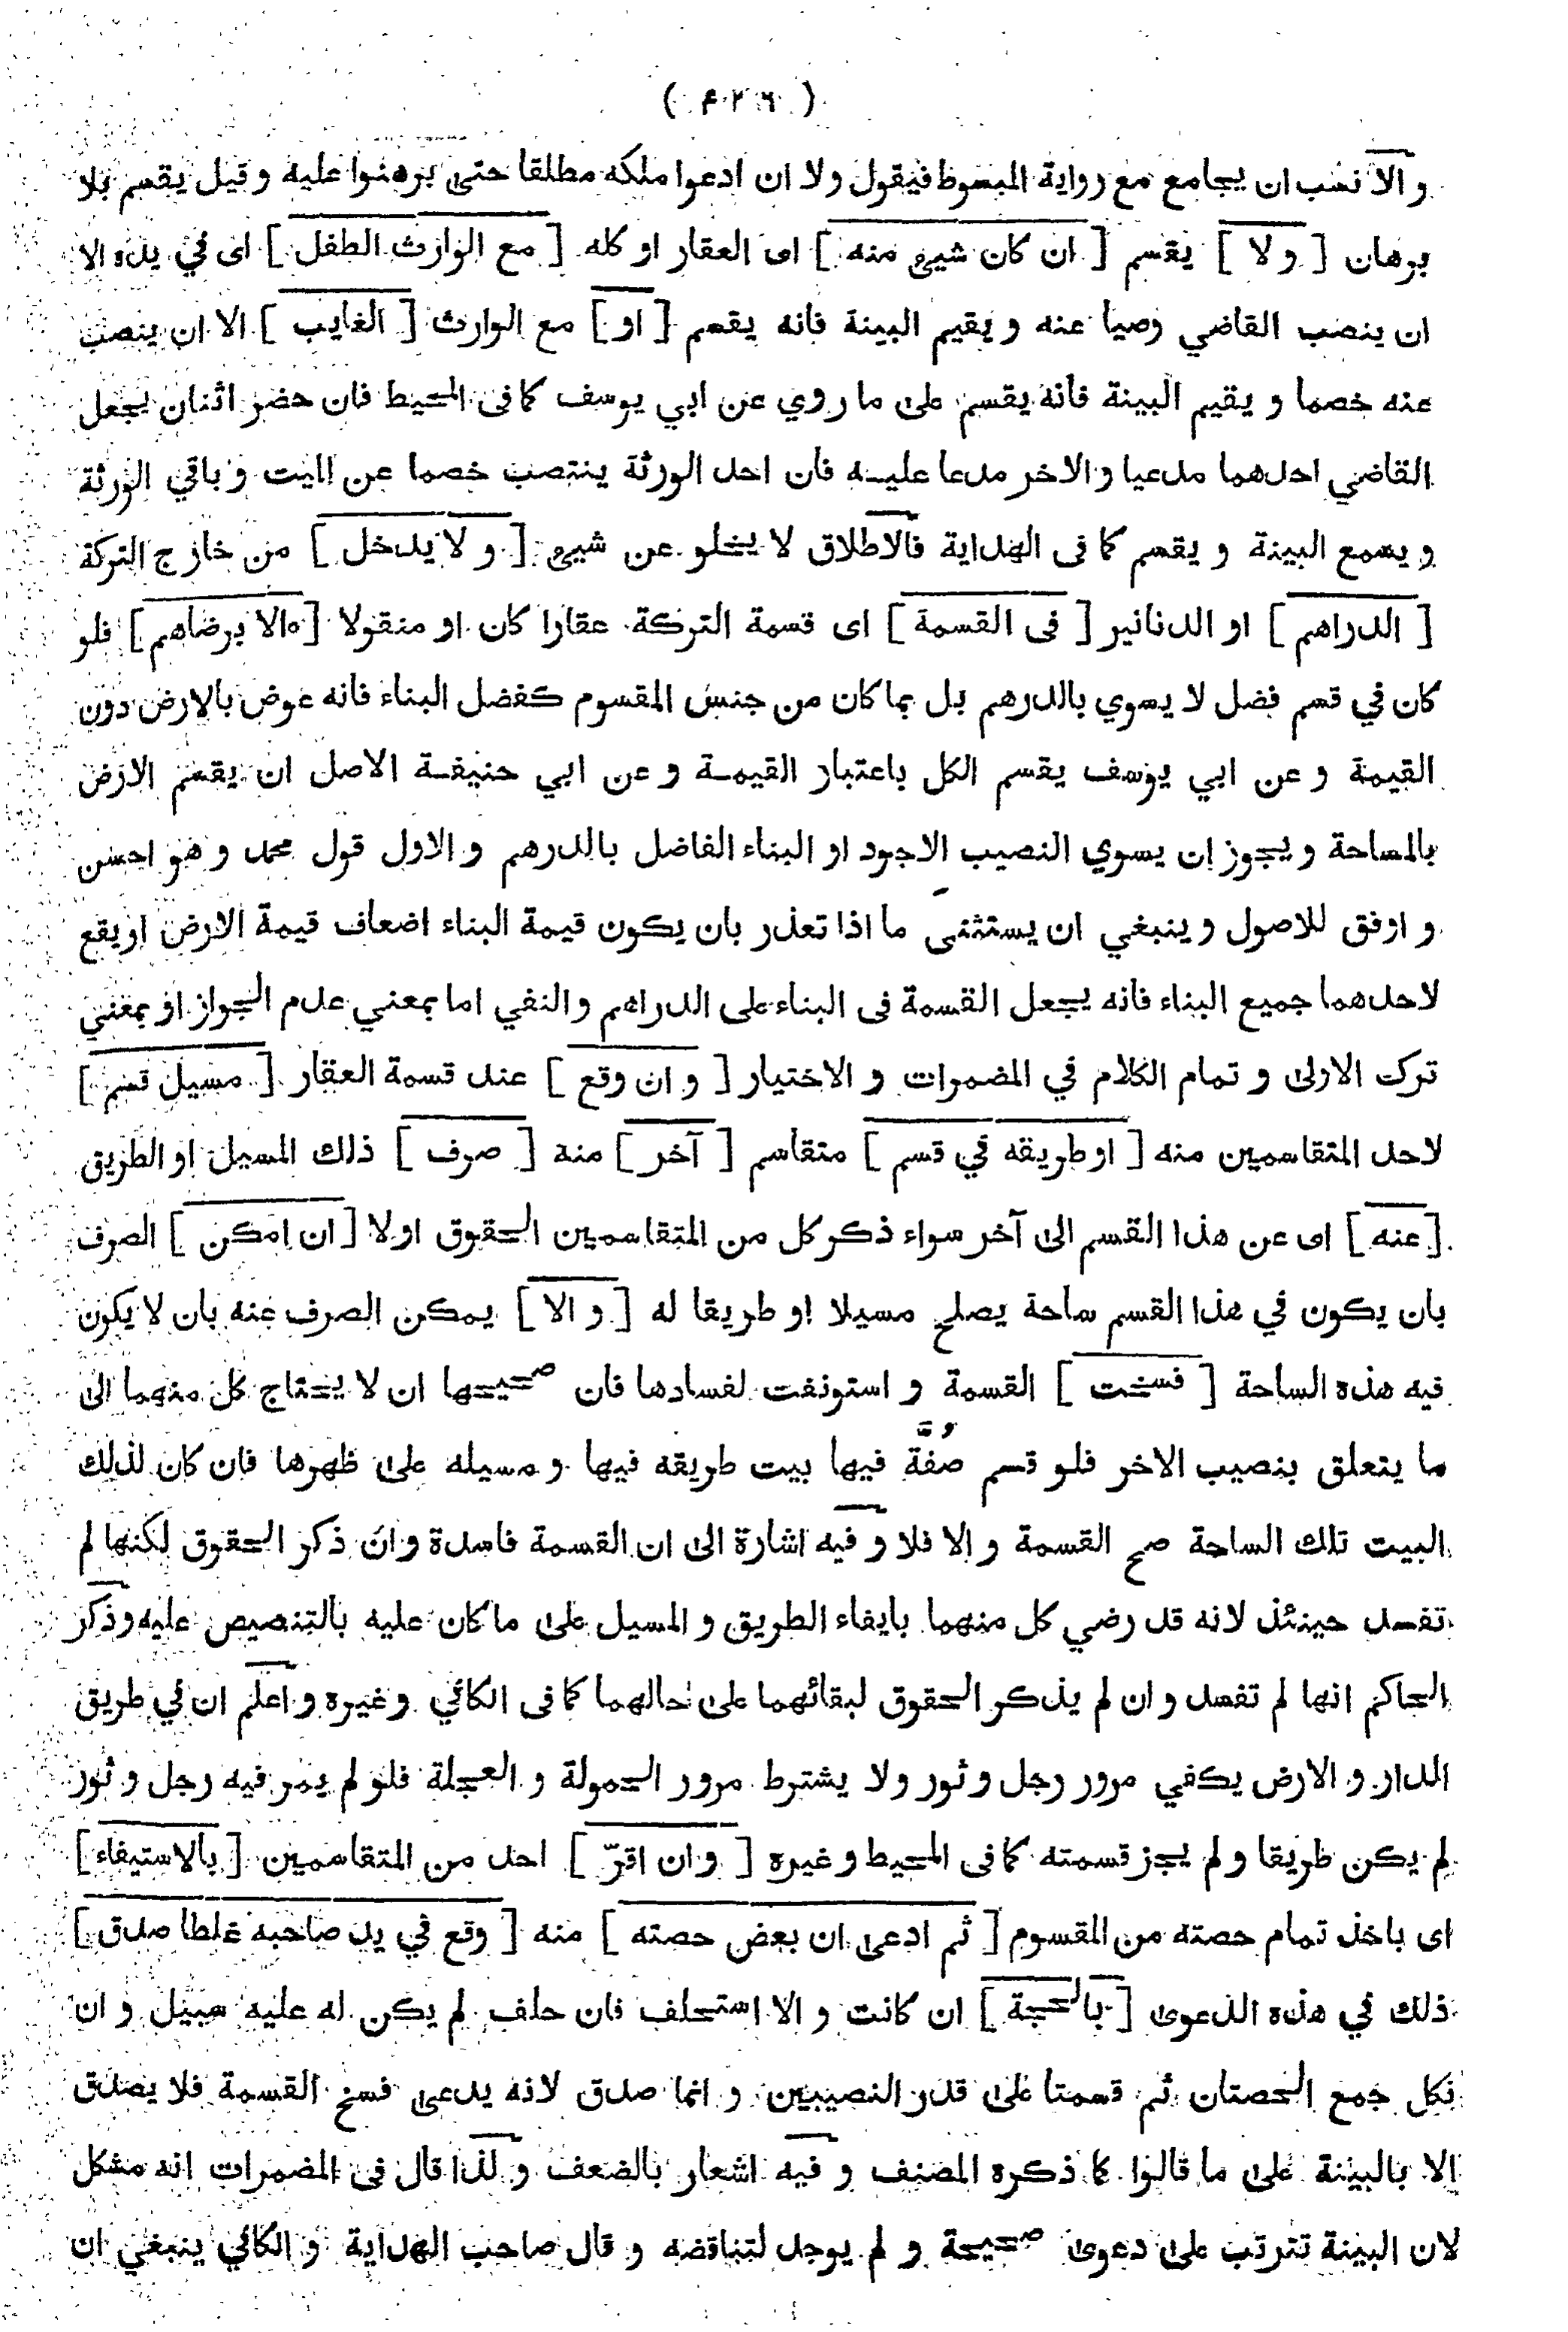 ( ۴۲۶ )
و الانسب ان يجامع مع رواية المبسوط فيقول ولا ان ادعوا ملكه مطلقا حتى برهنوا عليه و قيل يقسم بلا
برهان [ و لا ] يقسم [ ان كان شيئ منه ] اى العقار او كله [ مع الوارث الطفل ] اى في يده الا
ان ينصب القاضي وصيا عنه و يقيم البينة فانه يقسم [ او ] مع الوارث [ الغايب ] الا ان ينصب
عنه خصما و يقيم البينة فانه يقسم على ما روي عن ابي يوسف كما فى المحيط فان حضر اثنان يجعل
القاضي احدهما مدعيا و الاخر مدعا عليه فان احد الورثة ينتصب خصما عن الميت و باقي الورثة
و يسمع البينة و يقسم كما فى الهداية فالاطلاق لا يخلو عن شيئ [ و لا يدخل ] من خارج التركة
[ الدراهم ] او الدنانير [ فى القسمة ] اى قسمة التركة عقارا كان او منقولا [ الا برضاهم ] فلو
كان في قسم فضل لا يسوي بالدرهم بل بما كان من جنس المقسوم كفضل البناء فانه عوض بالارض دون
القيمة و عن ابي يوسف يقسم الكل باعتبار القيمة و عن ابي حنيفة الاصل ان يقسم الارض
بالمساحة و يجوز ان يسوي النصيب الاجود او البناء الفاضل بالدرهم و الاول قول محمد و هو احسن
و اوفق للاصول و ينبغي ان يستثنى ما اذا تعذر بان يكون قيمة البناء اضعاف قيمة الارض او يقع
لاحدهما جميع البناء فانه يجعل القسمة فى البناء على الدراهم و النفي اما بمعني عدم الجواز او بمعني
ترك الاولى و تمام الكلام في المضمرات و الاختيار [ و ان وقع ] عند قسمة العقار [ مسيل قسم ]
لاحد المتقاسمين منه [ او طريقه في قسم ] متقاسم [ آخر ] منه [ صرف ] ذلك المسيل او الطريق
[ عنه ] اى عن هذا القسم الى آخر سواء ذكر كل من المتقاسمين الحقوق او لا [ ان امكن ] الصرف
بان يكون في هذا القسم ساحة يصلح مسيلا او طريقا له [ و الا ] يمكن الصرف عنه بان لا يكون
فيه هذه الساحة [ فسخت ] القسمة و استونفت لفسادها فان صحيحها ان لا يحتاج كل منهما الى
ما يتعلق بنصيب الاخر فلو قسم صُفَّة فيها بيت طريقه فيها و مسيله على ظهرها فان كان لذلك
البيت تلك الساحة صح القسمة و الا فلا و فيه اشارة الى ان القسمة فاسدة و ان ذكر الحقوق لكنها لم
تفسد حينئذ لانه قد رضي كل منهما بايفاء الطريق و المسيل على ما كان عليه بالتنصيص عليه و ذكر
الحاكم انها لم تفسد و ان لم يذكر الحقوق لبقائهما على حالهما كما فى الكافي و غيره و اعلم ان في طريق
الدار و الارض يكفي مرور رجل و ثور و لا يشترط مرور الحمولة و العجلة فلو لم يمر فيه رجل و ثور
لم يكن طريقا و لم يجز قسمته كما فى المحيط و غيره [ و ان اقرّ ] احد من المتقاسمين [ بالاستيفاء ]
اى باخذ تمام حصته من المقسوم [ ثم ادعى ان بعض حصته ] منه [ وقع في يد صاحبه غلطا صدق ]
ذلك في هذه الدعوى [ بالحجة ] ان كانت و الا استحلف فان حلف لم يكن له عليه سبيل و ان
نكل جمع الحصتان ثم قسمتا على قدر النصيبين و انما صدق لانه يدعى فسخ القسمة فلا يصدق
الا بالبينة على ما قالوا كما ذكره المصنف و فيه اشعار بالضعف و لذا قال فى المضمرات انه مشكل
لان البينة تترتب على دعوى صحيحة و لم يوجد لتناقضه و قال صاحب الهداية و الكافي ينبغي ان